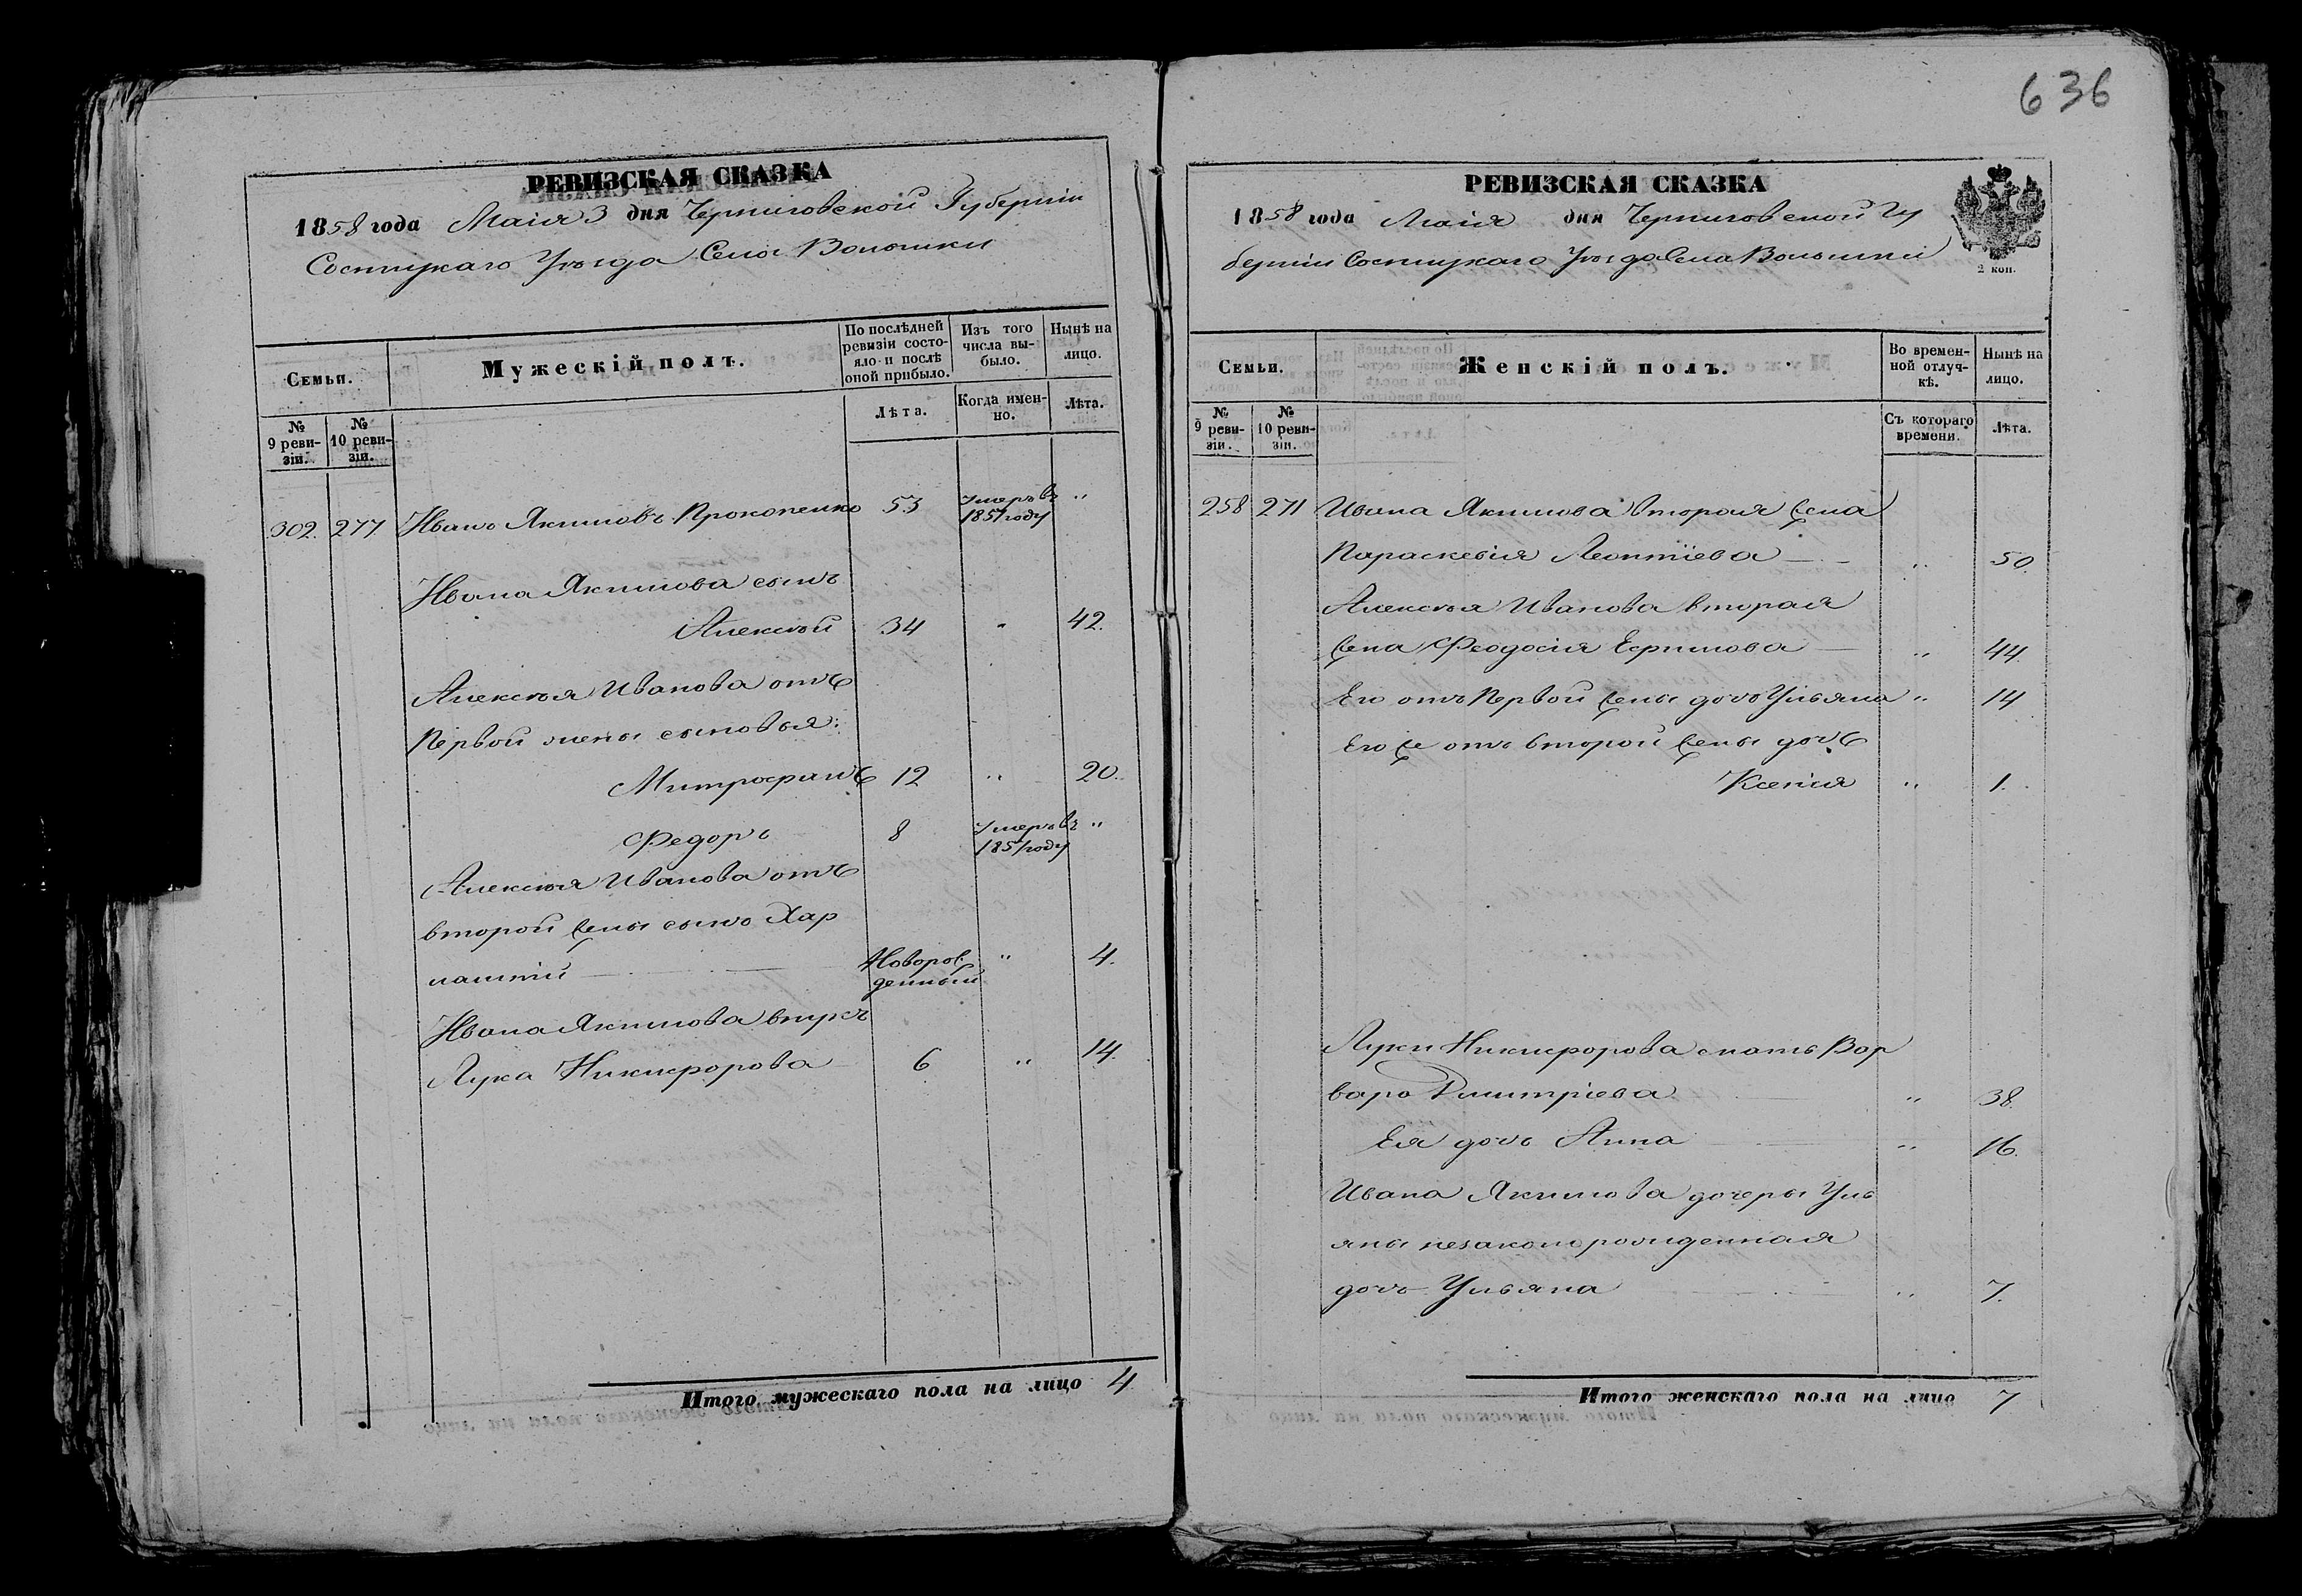 636
РЕВИЗСКАЯ СКАЗКА
1858 года Маія 3 дня Черниговской Губерніи
Сосницкаго Уѣзда Села Волынки
Семьи.
Мужескій полъ.
По послѣдней ревизіи состо-
яло и послѣ
оной прибыло.
Изъ того
числа вы-
было.
Нынѣ на
лицо.
№
9 реви-
зіи.
№
10 реви-
зіи.
Лѣта.
Когда имен-
но.
Лѣта.
302. 277. Иванъ Якимовъ Прокопенко 53 Умеръ въ 1851 году "
Ивана Якимова сынъ
Алексѣй 34 " 42.
Алексѣя Иванова отъ
Первой жены сыновья:
Митрофанъ 12 " 20.
Федоръ 8 Умеръ въ "
185 году
Алексѣя Иванова отъ
второй жены сынъ Хар
лампій Новорож " 4.
денный
Ивана Якимова внукъ
Лука Никифорова 6 " 14.
Итого мужескаго пола на лицо 4
РЕВИЗСКАЯ СКАЗКА
1858 года Маія дня Черниговской Гу
берніи Сосницкаго Уѣзда Села Волынки
2 коп.
Семьи.
Женскій полъ.
Во времен-
ной отлуч-
кѣ.
Нынѣ на
лицо.
№
9 реви-
зіи.
№
10 реви-
зіи.
Съ котораго
времени.
Лѣта.
258 271 Ивана Якимова вторая жена
Параскевія Леонтіева " 50.
Алексѣя Иванова вторая
жена Феодосія Ефимова " 44.
Его отъ Первой жены дочь Ульяна " 14
Его же отъ второй жены дочь
Ксенія " 1.
Луки Никифорова мать Вар
вара Дмитріева " 38.
Ея дочь Анна " 16.
Ивана Якимова дочеры Уль
яны незаконорожденная
дочь Ульяна " 7.
Итого женскаго пола на лицо 7